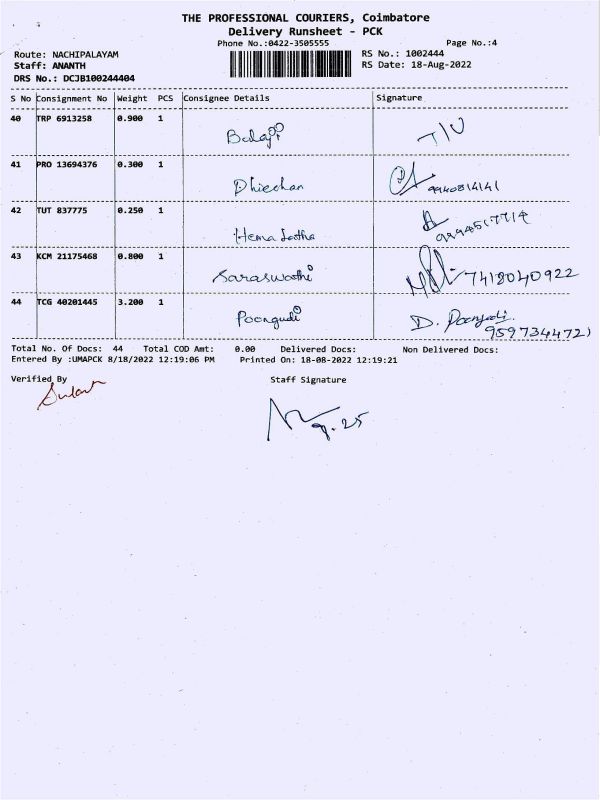 THE PROFESSIONAL COURIERS, Coimbatore
Delivery Runsheet - PCK
Phone No.:0422-3505555 Page No.:4
Route: NACHIPALAYAM RS No.: 1002444
Staff: ANANTH RS Date: 18-Aug-2022
DRS No.: DCJB100244404
S No Consignment No Weight PCS Consignee Details Signature
40 TRP 6913258 0.900 1 Balaji
41 PRO 13694376 0.300 1 Dhiechan 9940814141
42 TUT 837775 0.250 1 Hema Latha 9994517714
43 KCM 21175468 0.800 1 Saraswathi 7418040922
44 TCG 40201445 3.200 1 Poongudi D. Poongodi.
9597344721
Total No. Of Docs: 44 Total COD Amt: 0.00 Delivered Docs: Non Delivered Docs:
Entered By :UMAPCK 8/18/2022 12:19:06 PM Printed On: 18-08-2022 12:19:21
Verified By Staff Signature
9.25